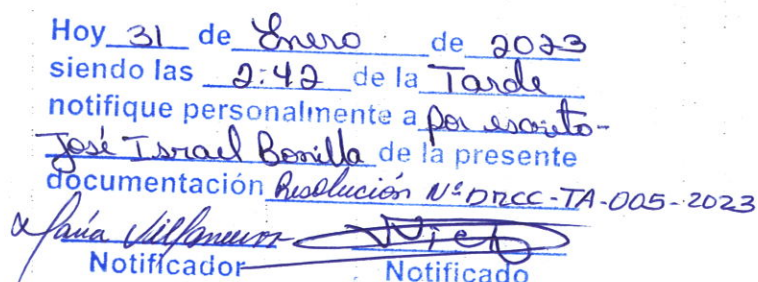 Hoy 31 de Enero de 2023
siendo las 2:42 de la Tarde
notifique personalmente a por escrito-
José Israel Bonilla de la presente
documentación Resolución Nº DRCC-TA-005-2023
Notificador Notificado